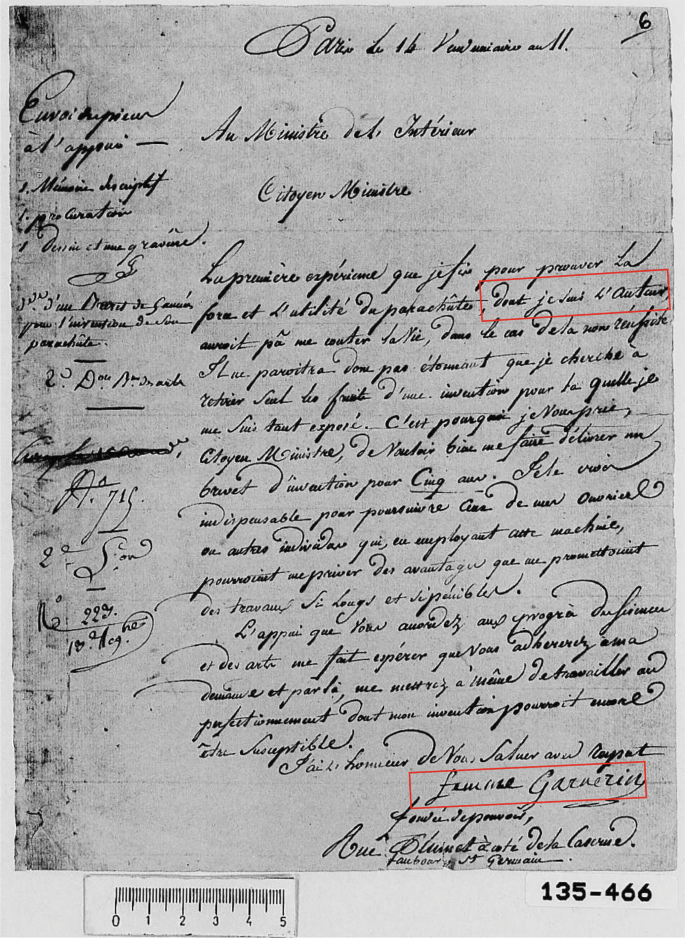 6
Paris Le 14 Vendemiaire an 11.
Envoi de pieces
à l'appui —
Au Ministre de l'Intérieur
1. Mémoire descriptif
Citoyen Ministre
1. procuration
1 Dessin et une gravure.
La première expérience que je fis, pour prouver La
force et L'utilité du parachûte, dont je suis L'Auteur,
auroit pû me couter la Vie, dans le cas de la non réussite
Il ne paroitra donc pas étonnant que je cherche à
retirer seul les fruits d'une invention pour la quelle je
me suis tant exposé. C'est pourquoi je Vous prie,
Citoyen Ministre, de Vouloir bien me faire délivrer un
brevet d'invention pour Cinq ans. Je le crois
indispensable pour poursuivre Ceux de mes Ouvriers
ou autres individus qui, en employant cette machine,
pourroient me priver des avantages que me promettoient
des travaux Si Longs et si pénibles.
L'appui que Vous accordez aux progrès des Sciences
et des arts me fait espérer que Vous adhererez à ma
demande et par là, me mettrez à même de travailler au
perfectionnement dont mon invention pourroit encore
être Susceptible.
J'ai L'honneur de Vous Saluer avec respect
femme Garnerin
fondée de pouvoirs,
Rue Plumet à coté de la Caserne.
faubourg St Germain.
d'un Brevet de Garnerin
pour l'invention de son
parachûte.
2.
N.o
715.
2.e
N.o 223.
135-466
0 1 2 3 4 5